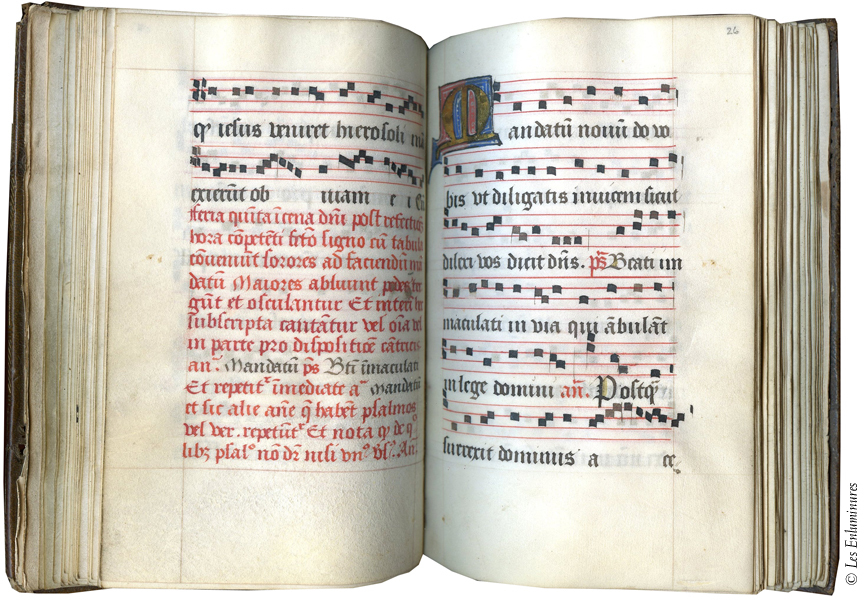 q̄ iesus veniret hierosoli mā
exierūt ob uiam e i
feria quīta ī cena dn̄i post
hora cōpetēti signo cū tabula
cōveniūt sorores ad faciendū
datū Maiores abluunt pedes
gūt et osculantur Et
subscripta cantātur vel oīa vel
in parte pro dispositiōe cātricis
an̄. Mandatū ps̄ Bt̄i īmaculati
Et repetit̄ īmediate a᷒ mandatū
et sic alie an̄e q̄ habēt psalmos
vel ver. repetūt̄ Et nota
psal᷒ nō dr̄ nisi vn᷒ v̄s᷒. An.
26
Mandatū nouū do vo
bis vt diligatis inuicem sicut
dilexi vos dicit dn̄s. ps̄ Beati im
maculati in via qui ābulāt
in lege domini an̄. Postq̄
surrexit dominus a ce
© Les Enluminures